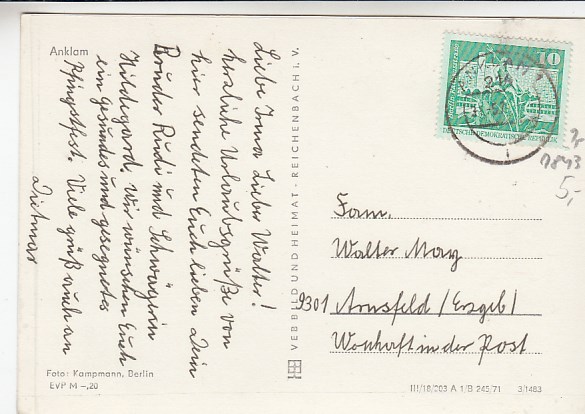 Anklam
Liebe Irma Lieber Walter!
herzliche Urlaubsgrüße von
hier sendeten Euch lieben Dein
Bruder Rudi und Schwägerin
Hildegard. Wir wünschen Euch
ein gesundes und gesegnetes
Pfingstfest. Viele grüß auch an
Dietmar
Foto: Kampmann, Berlin
EVP M –,20
VEB BILD UND HEIMAT · REICHENBACH I. V.
10
DEUTSCHE DEMOKRATISCHE REPUBLIK
1843
5,-
Fam.
Walter May
9301 Arnsfeld / Erzgeb /
Wohnhaft in der Post
III/18/203 A 1/B 245/71 3/1483